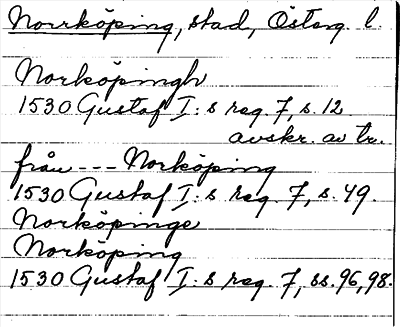 Norrköping, stad, Österg. l.
Norköpingh
1530 Gustaf I:s reg. 7, s. 12
avskr. av tr.
från --- Norköping
1530 Gustaf I:s reg. 7, s. 49.
Norköpinge
Norköping
1530 Gustaf I:s reg. 7, ss. 96, 98.